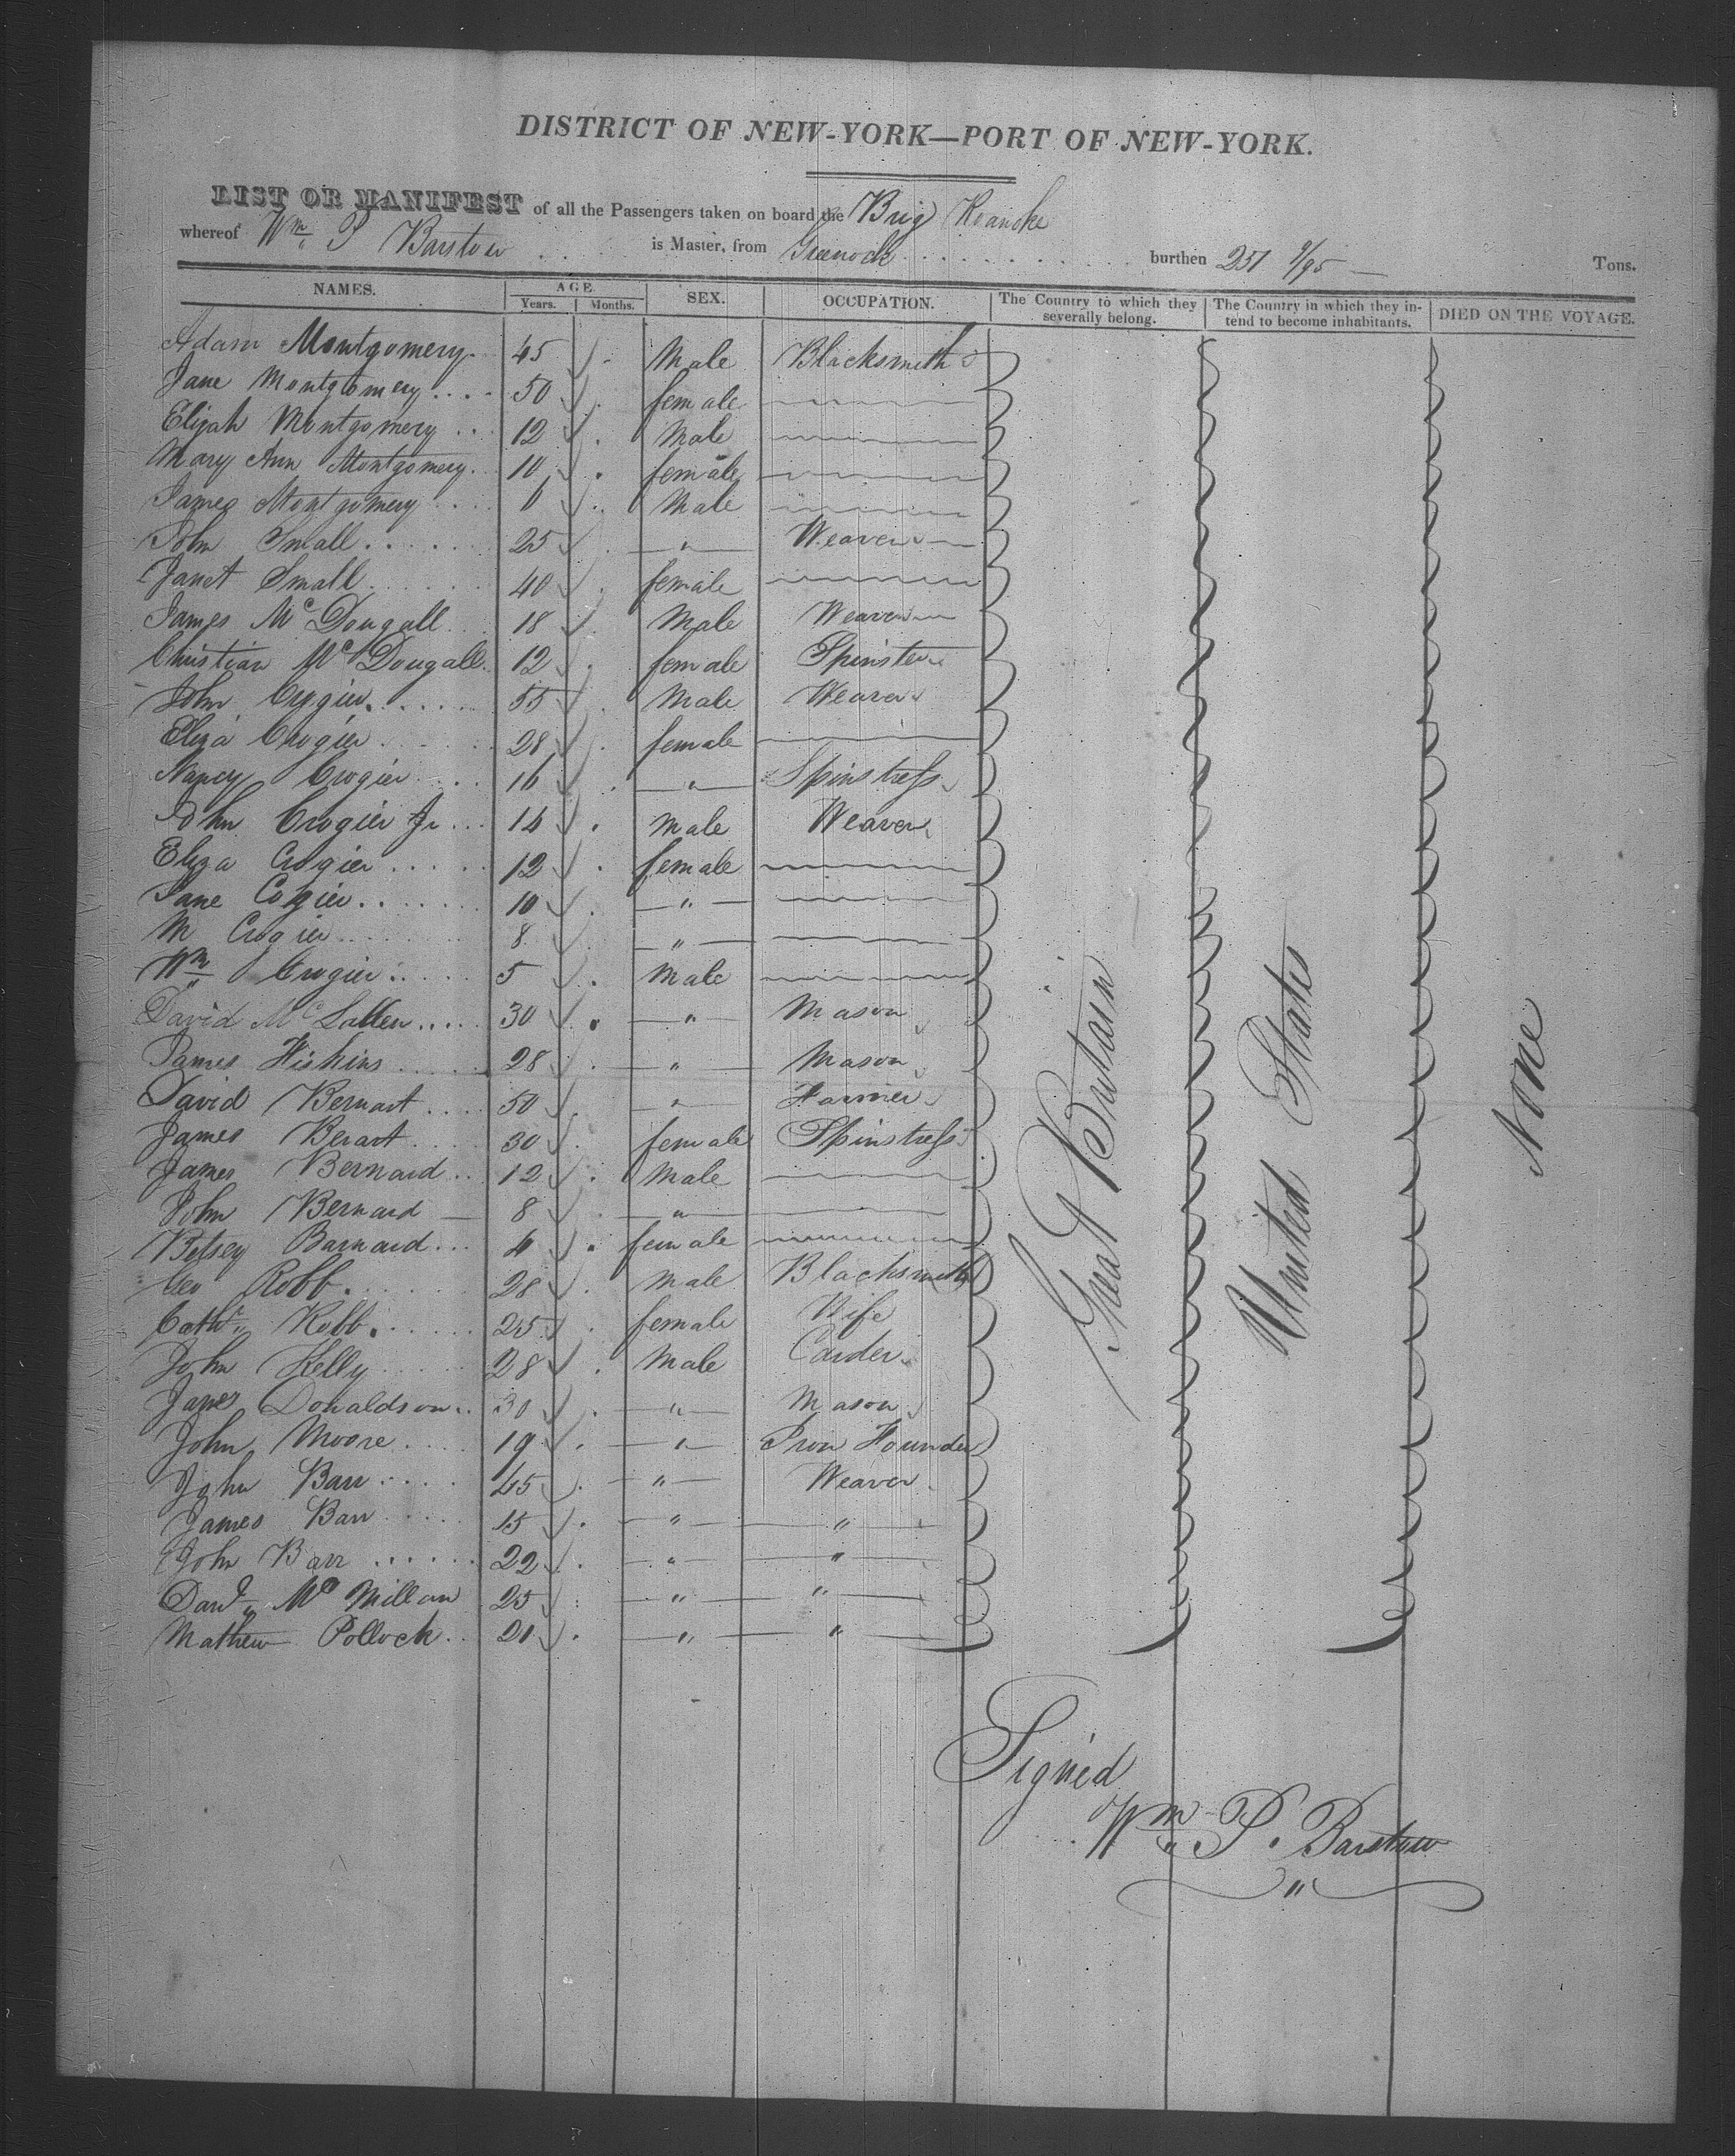 DISTRICT OF NEW-YORK—PORT OF NEW-YORK.
LIST OR MANIFEST of all the Passengers taken on board the Brig Roanoke
whereof Wm P Barstow is Master, from Greenock burthen 251 9/95 Tons.
NAMES. AGE Years. Months. SEX. OCCUPATION. The Country to which they severally belong. The Country in which they intend to become inhabitants. DIED ON THE VOYAGE.
Adam Montgomery 45 Male Blacksmith
Jane Montgomery 50 female
Elijah Montgomery 12 Male
Mary Ann Montgomery 10 female
James Montgomery 6 Male
John Small 25 " Weaver
Janet Small 40 female
James McDougall 18 Male Weaver
Christian McDougall 12 female Spinster
John Crogier 55 Male Weaver
Eliza Crogier 28 female
Nancy Crogier 16 " Spinstress
John Crogier Jr 14 Male Weaver
Eliza Crogier 12 female
Jane Cogier 10 "
M Crogier 8 "
Wm Crogier 5 Male
David Mc 30 " Mason
James Hiskins 28 " Mason
David Bernart 50 " Farmer
James Berart 30 female Spinstress
James Bernard 12 Male
John Bernard 8 "
Betsey Barnard 4 female
Geo Robb 28 Male Blacksmith
Cathe Robb 25 female Wife
John Kelly 28 Male Carder
James Donaldson 30 " Mason
John Moore 19 " Iron Founder
John Barr 45 " Weaver
James Barr 15 " "
John Barr 22 " "
Davd McMillan 25 " "
Mathew Pollock 20 " "
Great Britain
United States
None
Signed
Wm P. Barstow